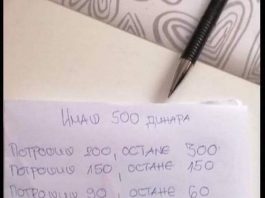 Имаш 500 динара
Потрошиш 200, остане 300
Потрошиш 150, остане 150
Потрошиш 90, остане 60